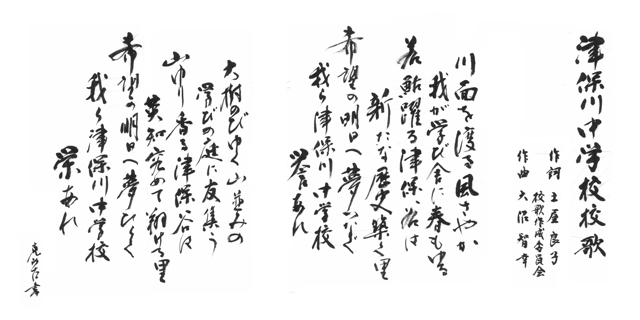 津保川中学校校歌
作詞 土屋良子
校歌作成委員会
作曲 大沼智幸
川面を渡る風さやか
我が学び舎に春も
若鮎躍る津保
新たな歴史築く里
希望の明日へ夢つなぐ
我ら津保川中学校
誉あれ
大樹のびゆく山並みの
学びの庭に友集う
山ゆり香る津保谷は
英知究めて翔ける里
希望の明日へ夢ひらく
我ら津保川中学校
栄あれ